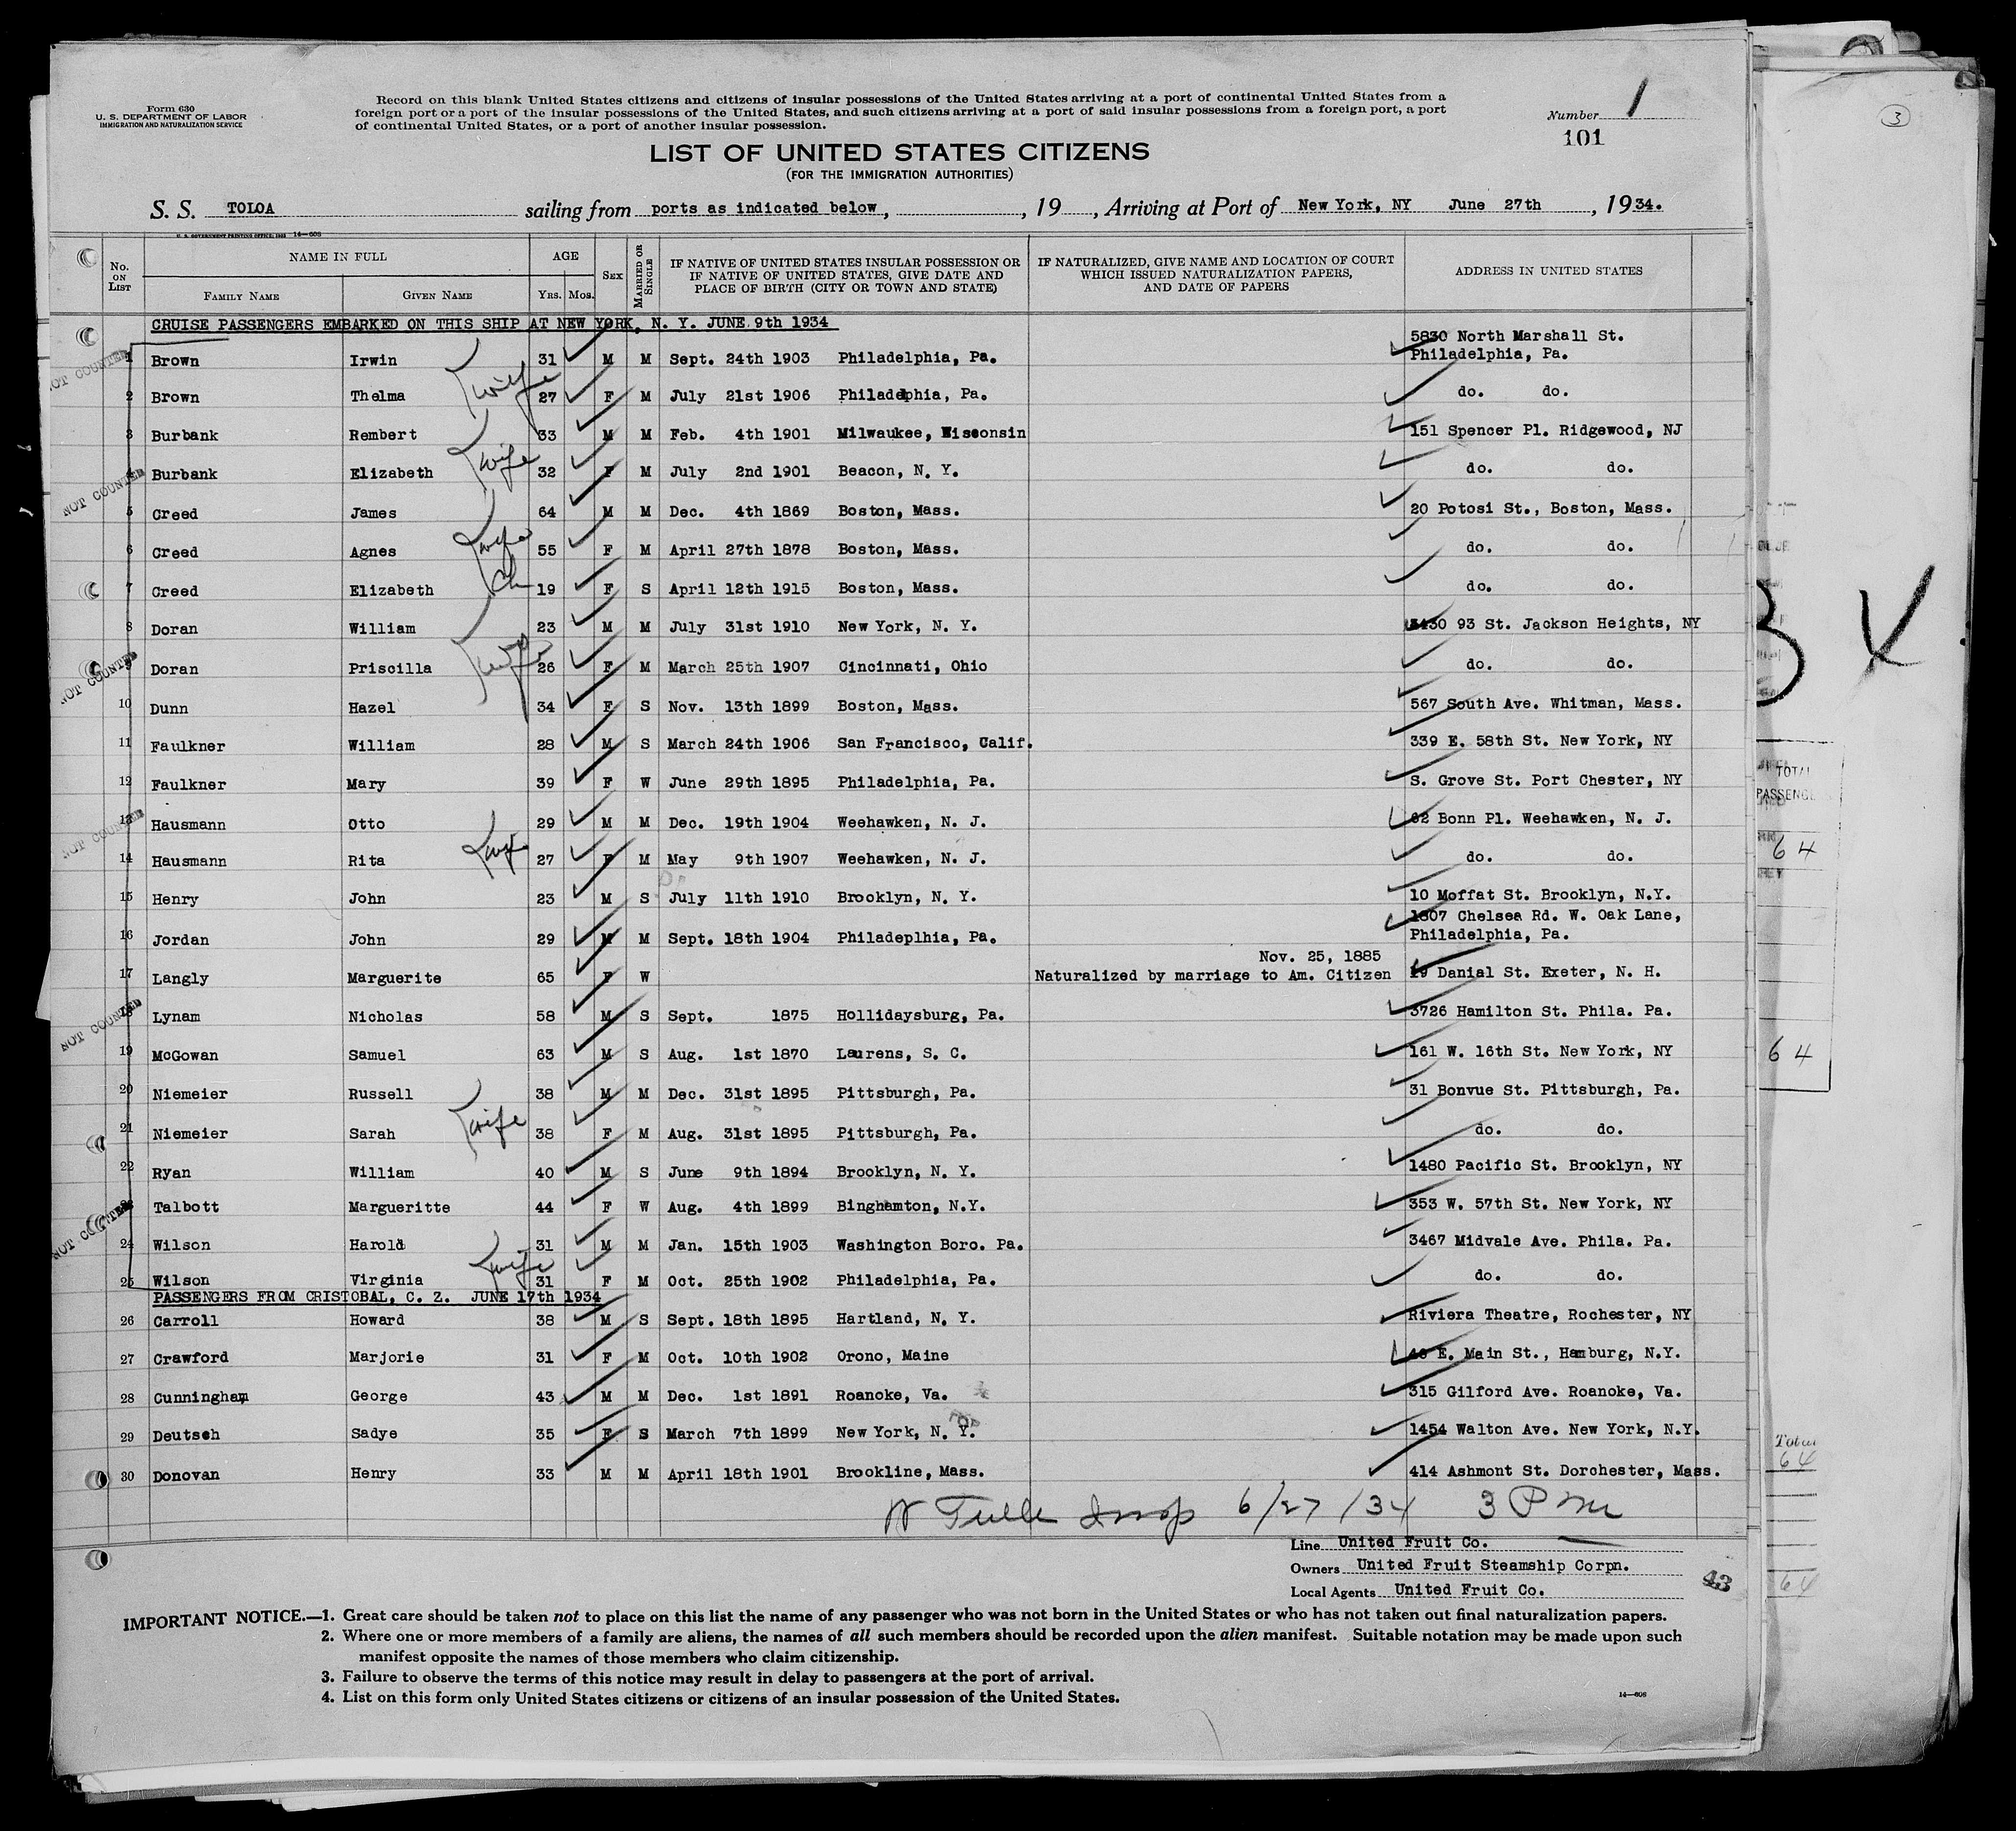 Form 630
U. S. DEPARTMENT OF LABOR
IMMIGRATION AND NATURALIZATION SERVICE
Record on this blank United States citizens and citizens of insular possessions of the United States arriving at a port of continental United States from a
foreign port or a port of the insular possessions of the United States, and such citizens arriving at a port of said insular possessions from a foreign port, a port
of continental United States, or a port of another insular possession.
Number 1
101
3
LIST OF UNITED STATES CITIZENS
(FOR THE IMMIGRATION AUTHORITIES)
S. S. TOLOA sailing from ports as indicated below, , 19 , Arriving at Port of New York, NY June 27th , 1934.
U. S. GOVERNMENT PRINTING OFFICE: 1933 14—608
No. ON LIST NAME IN FULL FAMILY NAME GIVEN NAME AGE YRS. MOS. SEX MARRIED OR SINGLE IF NATIVE OF UNITED STATES INSULAR POSSESSION OR IF NATIVE OF UNITED STATES, GIVE DATE AND PLACE OF BIRTH (CITY OR TOWN AND STATE) IF NATURALIZED, GIVE NAME AND LOCATION OF COURT WHICH ISSUED NATURALIZATION PAPERS, AND DATE OF PAPERS ADDRESS IN UNITED STATES
CRUISE PASSENGERS EMBARKED ON THIS SHIP AT NEW YORK, N. Y. JUNE 9th 1934
5830 North Marshall St.
1 Brown Irwin 31 M M Sept. 24th 1903 Philadelphia, Pa. Philadelphia, Pa.
2 Brown Thelma wife 27 F M July 21st 1906 Philadelphia, Pa. do. do.
3 Burbank Rembert 33 M M Feb. 4th 1901 Milwaukee, Wisconsin 151 Spencer Pl. Ridgewood, NJ
4 Burbank Elizabeth wife 32 F M July 2nd 1901 Beacon, N. Y. do. do.
5 Creed James 64 M M Dec. 4th 1869 Boston, Mass. 20 Potosi St., Boston, Mass.
6 Creed Agnes wife 55 F M April 27th 1878 Boston, Mass. do. do.
7 Creed Elizabeth Ch 19 F S April 12th 1915 Boston, Mass. do. do.
8 Doran William 23 M M July 31st 1910 New York, N. Y. 3430 93 St. Jackson Heights, NY
9 Doran Priscilla wife 26 F M March 25th 1907 Cincinnati, Ohio do. do.
10 Dunn Hazel 34 F S Nov. 13th 1899 Boston, Mass. 567 South Ave. Whitman, Mass.
11 Faulkner William 28 M S March 24th 1906 San Francisco, Calif. 339 E. 58th St. New York, NY
12 Faulkner Mary 39 F W June 29th 1895 Philadelphia, Pa. S. Grove St. Port Chester, NY
13 Hausmann Otto 29 M M Dec. 19th 1904 Weehawken, N. J. 62 Bonn Pl. Weehawken, N. J.
14 Hausmann Rita wife 27 F M May 9th 1907 Weehawken, N. J. do. do.
15 Henry John 23 M S July 11th 1910 Brooklyn, N. Y. 10 Moffat St. Brooklyn, N.Y.
1807 Chelsea Rd. W. Oak Lane,
16 Jordan John 29 M M Sept. 18th 1904 Philadeplhia, Pa. Philadelphia, Pa.
Nov. 25, 1885
17 Langly Marguerite 65 F W Naturalized by marriage to Am. Citizen 19 Danial St. Exeter, N. H.
18 Lynam Nicholas 58 M S Sept. 1875 Hollidaysburg, Pa. 3726 Hamilton St. Phila. Pa.
19 McGowan Samuel 63 M S Aug. 1st 1870 Laurens, S. C. 161 W. 16th St. New York, NY
20 Niemeier Russell 38 M M Dec. 31st 1895 Pittsburgh, Pa. 31 Bonvue St. Pittsburgh, Pa.
21 Niemeier Sarah wife 38 F M Aug. 31st 1895 Pittsburgh, Pa. do. do.
22 Ryan William 40 M S June 9th 1894 Brooklyn, N. Y. 1480 Pacific St. Brooklyn, NY
23 Talbott Margueritte 44 F W Aug. 4th 1899 Binghamton, N.Y. 353 W. 57th St. New York, NY
24 Wilson Harold 31 M M Jan. 15th 1903 Washington Boro. Pa. 3467 Midvale Ave. Phila. Pa.
25 Wilson Virginia wife 31 F M Oct. 25th 1902 Philadelphia, Pa. do. do.
PASSENGERS FROM CRISTOBAL, C. Z. JUNE 17th 1934
26 Carroll Howard 38 M S Sept. 18th 1895 Hartland, N. Y. Riviera Theatre, Rochester, NY
27 Crawford Marjorie 31 F M Oct. 10th 1902 Orono, Maine E. Main St., Hamburg, N.Y.
28 Cunningham George 43 M M Dec. 1st 1891 Roanoke, Va. 315 Gilford Ave. Roanoke, Va.
29 Deutsch Sadye 35 F S March 7th 1899 New York, N. Y. 1454 Walton Ave. New York, N.Y.
30 Donovan Henry 33 M M April 18th 1901 Brookline, Mass. 414 Ashmont St. Dorchester, Mass.
NOT COUNTED
NOT COUNTED
NOT COUNTED
NOT COUNTED
NOT COUNTED
NOT COUNTED
Insp 6/27/34 3 Pm
Line United Fruit Co.
Owners United Fruit Steamship Corpn.
Local Agents United Fruit Co.
43
IMPORTANT NOTICE.—1. Great care should be taken not to place on this list the name of any passenger who was not born in the United States or who has not taken out final naturalization papers.
2. Where one or more members of a family are aliens, the names of all such members should be recorded upon the alien manifest. Suitable notation may be made upon such
manifest opposite the names of those members who claim citizenship.
3. Failure to observe the terms of this notice may result in delay to passengers at the port of arrival.
4. List on this form only United States citizens or citizens of an insular possession of the United States.
14—608
TOTAL
64
64
Total
64
64